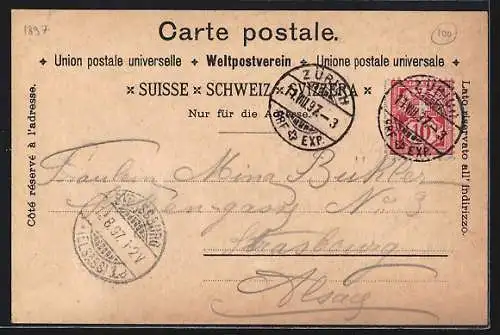 1897
100
Carte postale.
+ Union postale universelle + Weltpostverein + Unione postale universale +
× SUISSE × SCHWEIZ × SVIZZERA ×
Nur für die Adresse.
Côté réservé à l'adresse.
Lato riservato all' indirizzo.
ZÜRICH
VIII.97.-3
BRF. EXP.
ZÜRICH
BRF. EXP.
10
STRASSBURG
8.97.1-2V
(ELSASS) 1.
Fräulein Mina Bühler
No 3
Strasbourg
Alsace